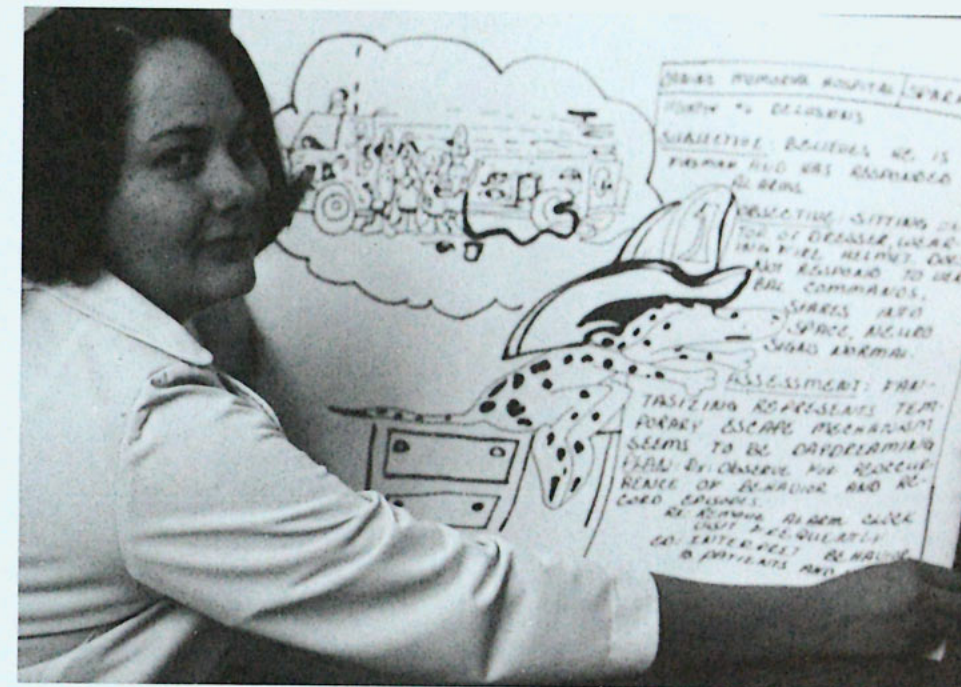 MEMORIAL HOSPITAL SPARK
DELUSIONS
SUBJECTIVE: BELIEVES HE IS
FIREMAN AND HAS RESPONDED
ALARMS
OBJECTIVE: SITTING ON
TOP OF DRESSER, WEAR-
ING FIRE HELMET. DOES
NOT RESPOND TO VER
BAL COMMANDS.
STARES INTO
SPACE, NEURO
SIGNS NORMAL.
ASSESSMENT: FAN-
TASIZING REPRESENTS TEM-
PORARY ESCAPE MECHANISM
SEEMS TO BE DAYDREAMING
PLAN: DX: OBSERVE FOR REOCCUR-
RENCE OF BEHAVIOR AND RE-
CORD EPISODES.
RX: REMOVE ALARM CLOCK
VISIT FREQUENTLY
ED: INTERPRET BEHAVIOR
PATIENTS AND